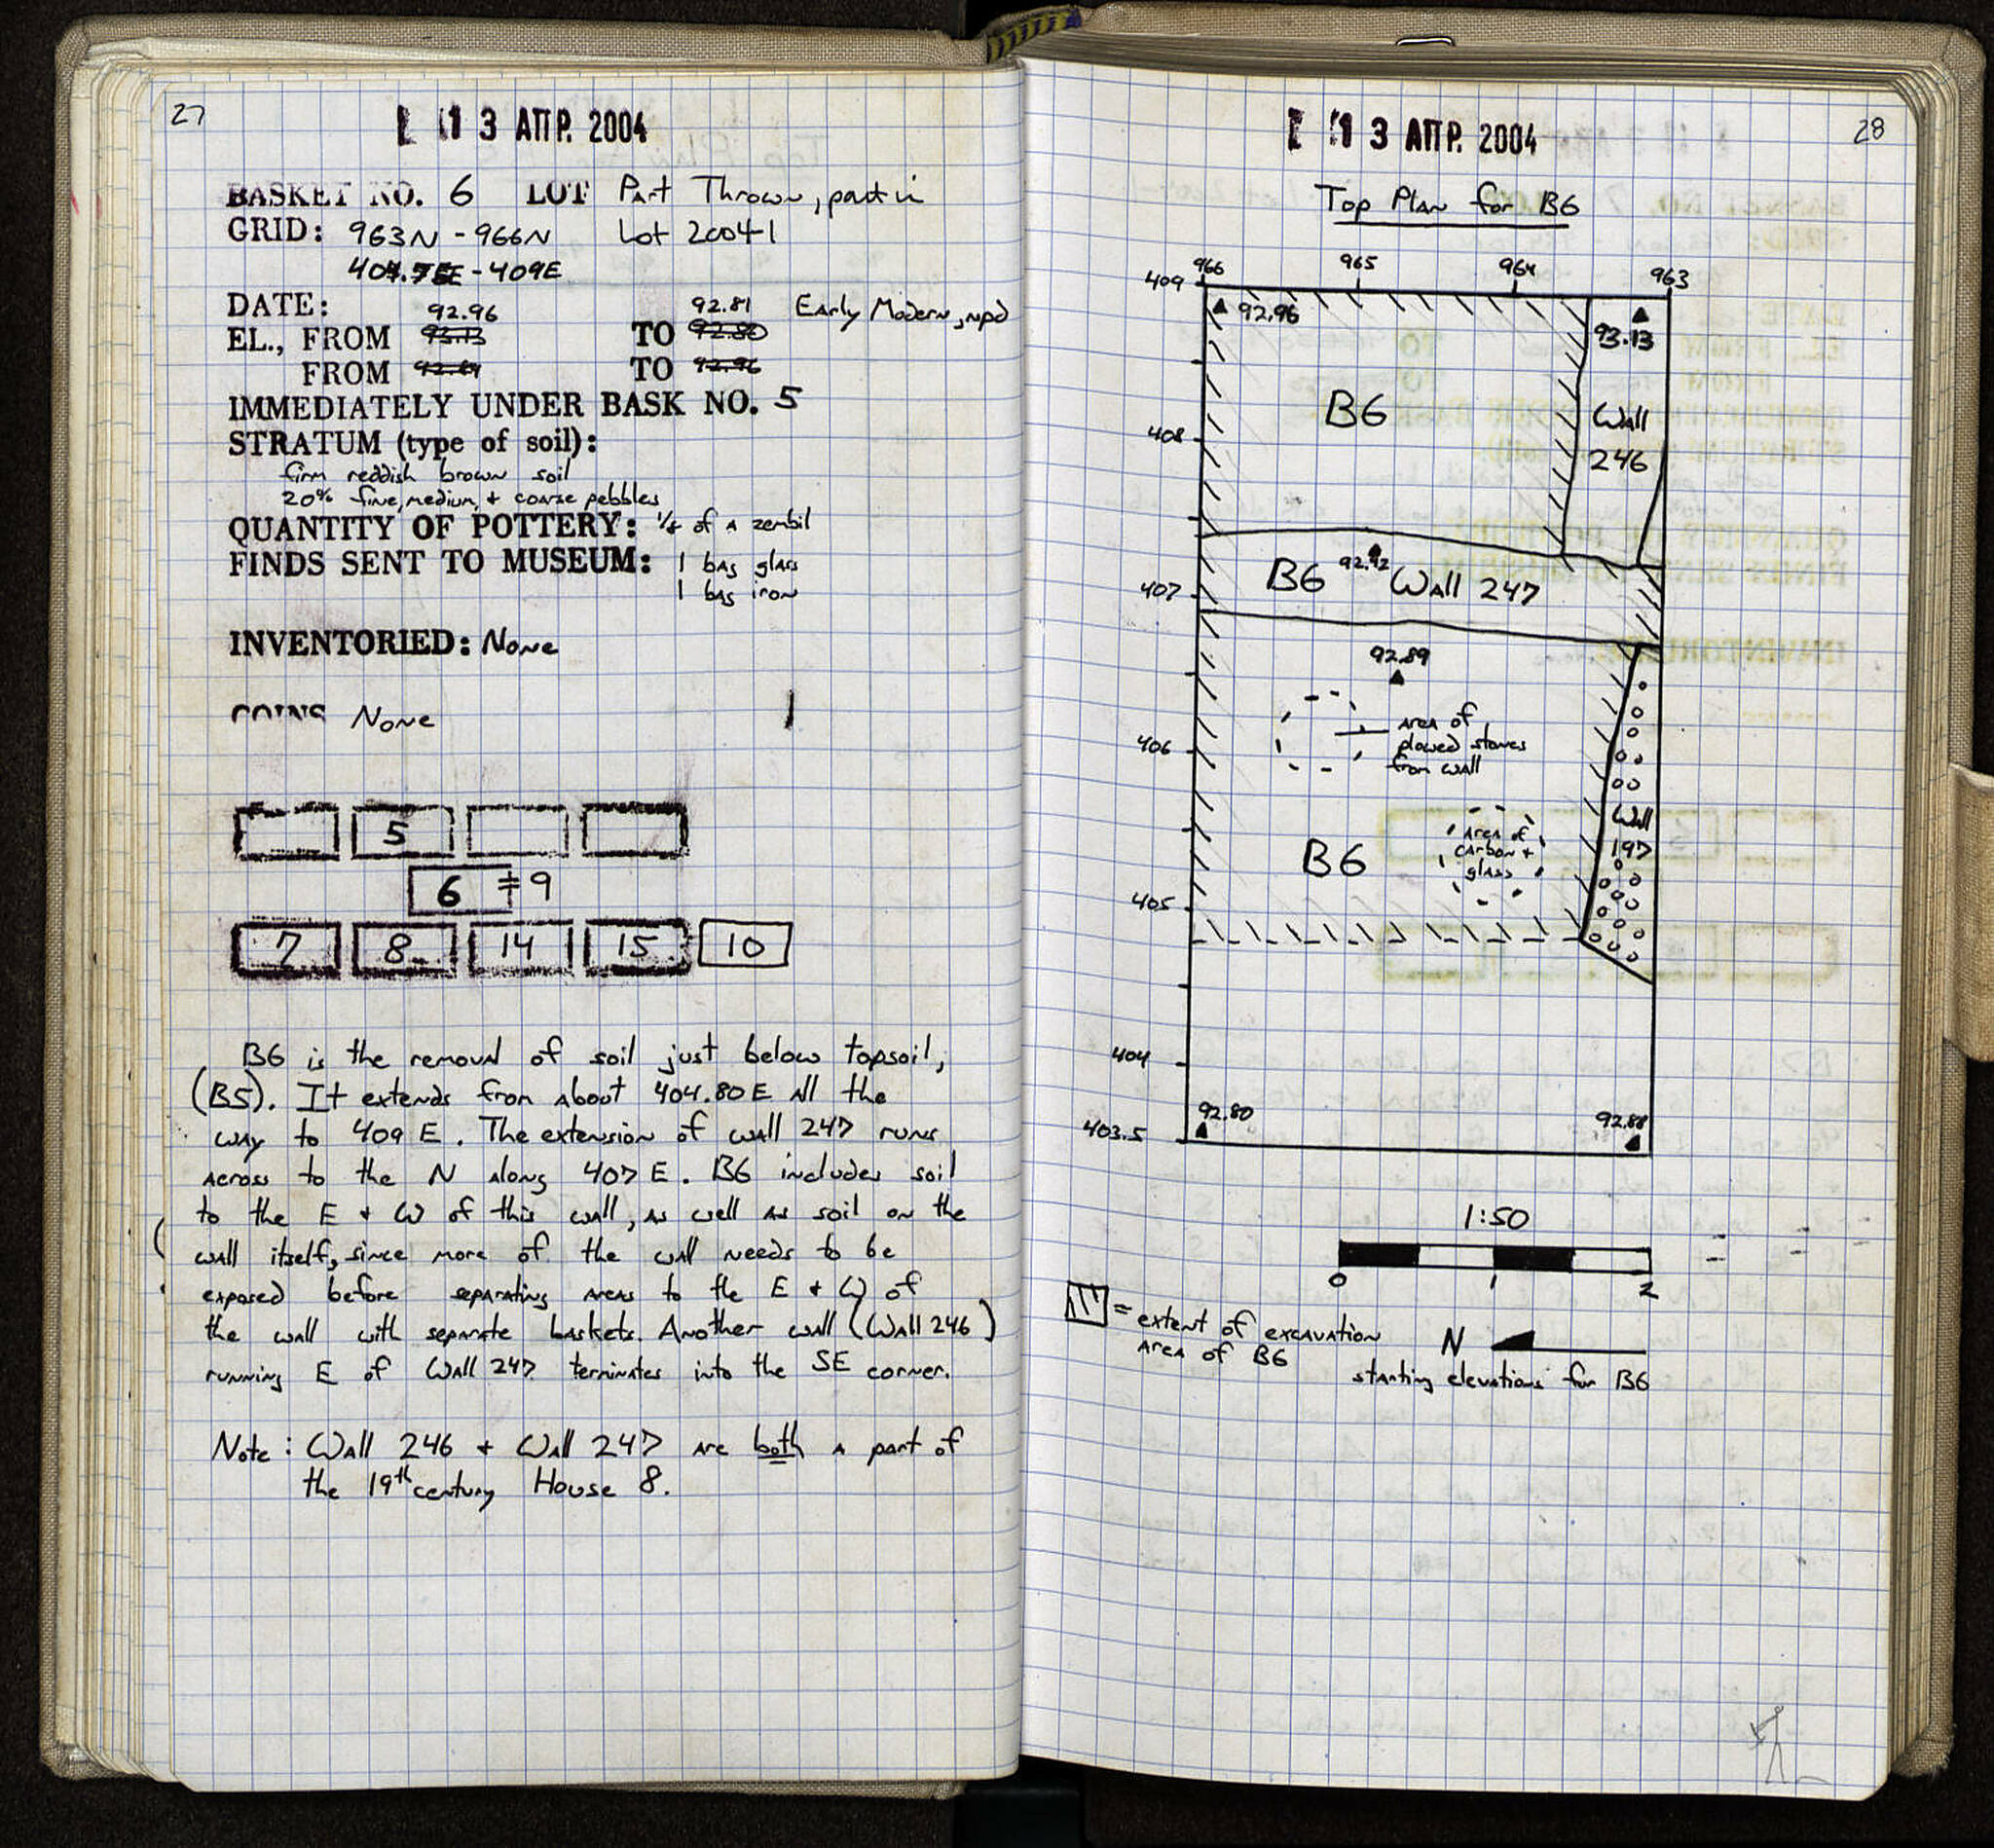 27
13 ΑΠΡ. 2004
BASKET NO. 6 LOT Part Thrown, part in
GRID: 963N - 966N Lot 2004-1
404.75E - 409E
DATE:
92.96 92.81 Early Modern, npd
EL., FROM 93.13 TO 92.80
FROM TO 92.96
IMMEDIATELY UNDER BASK NO. 5
STRATUM (type of soil):
firm reddish brown soil
20% fine, medium, + coarse pebbles
QUANTITY OF POTTERY: of a zembil
FINDS SENT TO MUSEUM: 1 bag glass
1 bag iron
INVENTORIED: None
COINS None
5
6 ≠9
7 8 14 15 10
B6 is the removal of soil just below topsoil,
(B5). It extends from about 404.80 E all the
way to 409 E. The extension of wall 247 runs
across to the N along 407 E. B6 includes soil
to the E + W of this wall, as well as soil on the
wall itself, since more of the wall needs to be
exposed before separating areas to the E + W of
the wall with separate baskets. Another wall (Wall 246)
running E of Wall 247 terminates into the SE corner.
Note: Wall 246 + Wall 247 are both a part of
the 19th century House 8.
28
13 ΑΠΡ. 2004
Top Plan for B6
966 965 964 963
409
92.96
93.13
B6
Wall
246
408
B6 92.92 Wall 247
407
92.89
area of
plowed stones
from wall
406
Wall
197
area of
carbon +
glass
B6
405
404
92.80 92.88
403.5
1:50
0 1 2
= extent of excavation
area of B6
N
starting elevations for B6